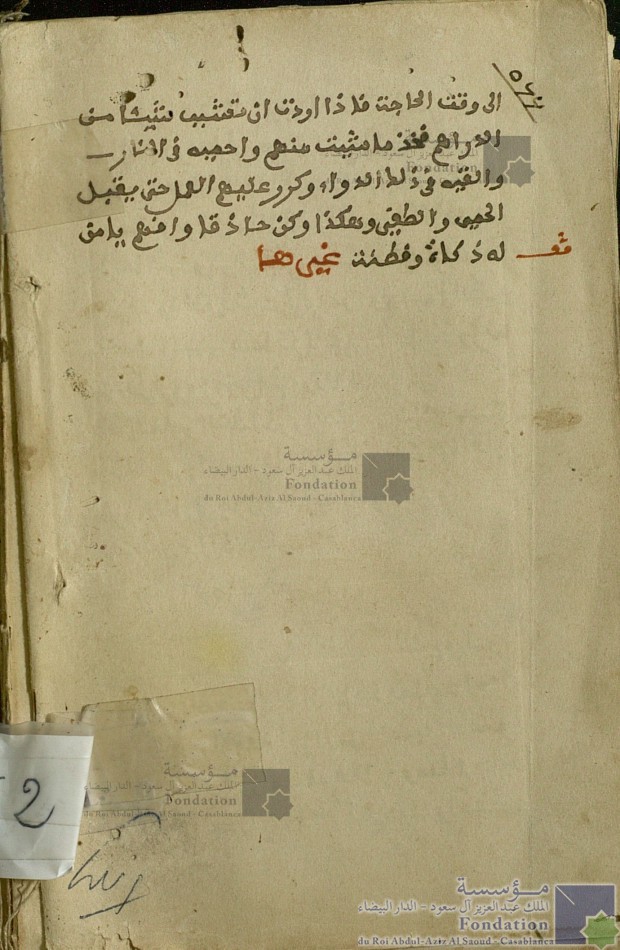 الى وقت الحاجة فاذا اردت ان تعشب شيئا من
الدراهم فخذ ما شيت منهم واحميه في النار
والقيه في ذلك الدواء وكرر عليهم العمل حتى يقبل
الحمي والطفي وهكذا وكن حاذقا وافهم يا من
له ذكاة وفطنة غيرها
مؤسسة
الملك عبد العزيز آل سعود - الدار البيضاء
Fondation
du Roi Abdul-Aziz Al Saoud - Casablanca
2
مؤسسة
الملك عبد العزيز آل سعود - الدار البيضاء
Fondation
du Roi Abdul-Aziz Al Saoud - Casablanca
مؤسسة
الملك عبد العزيز آل سعود - الدار البيضاء
Fondation
du Roi Abdul-Aziz Al Saoud - Casablanca